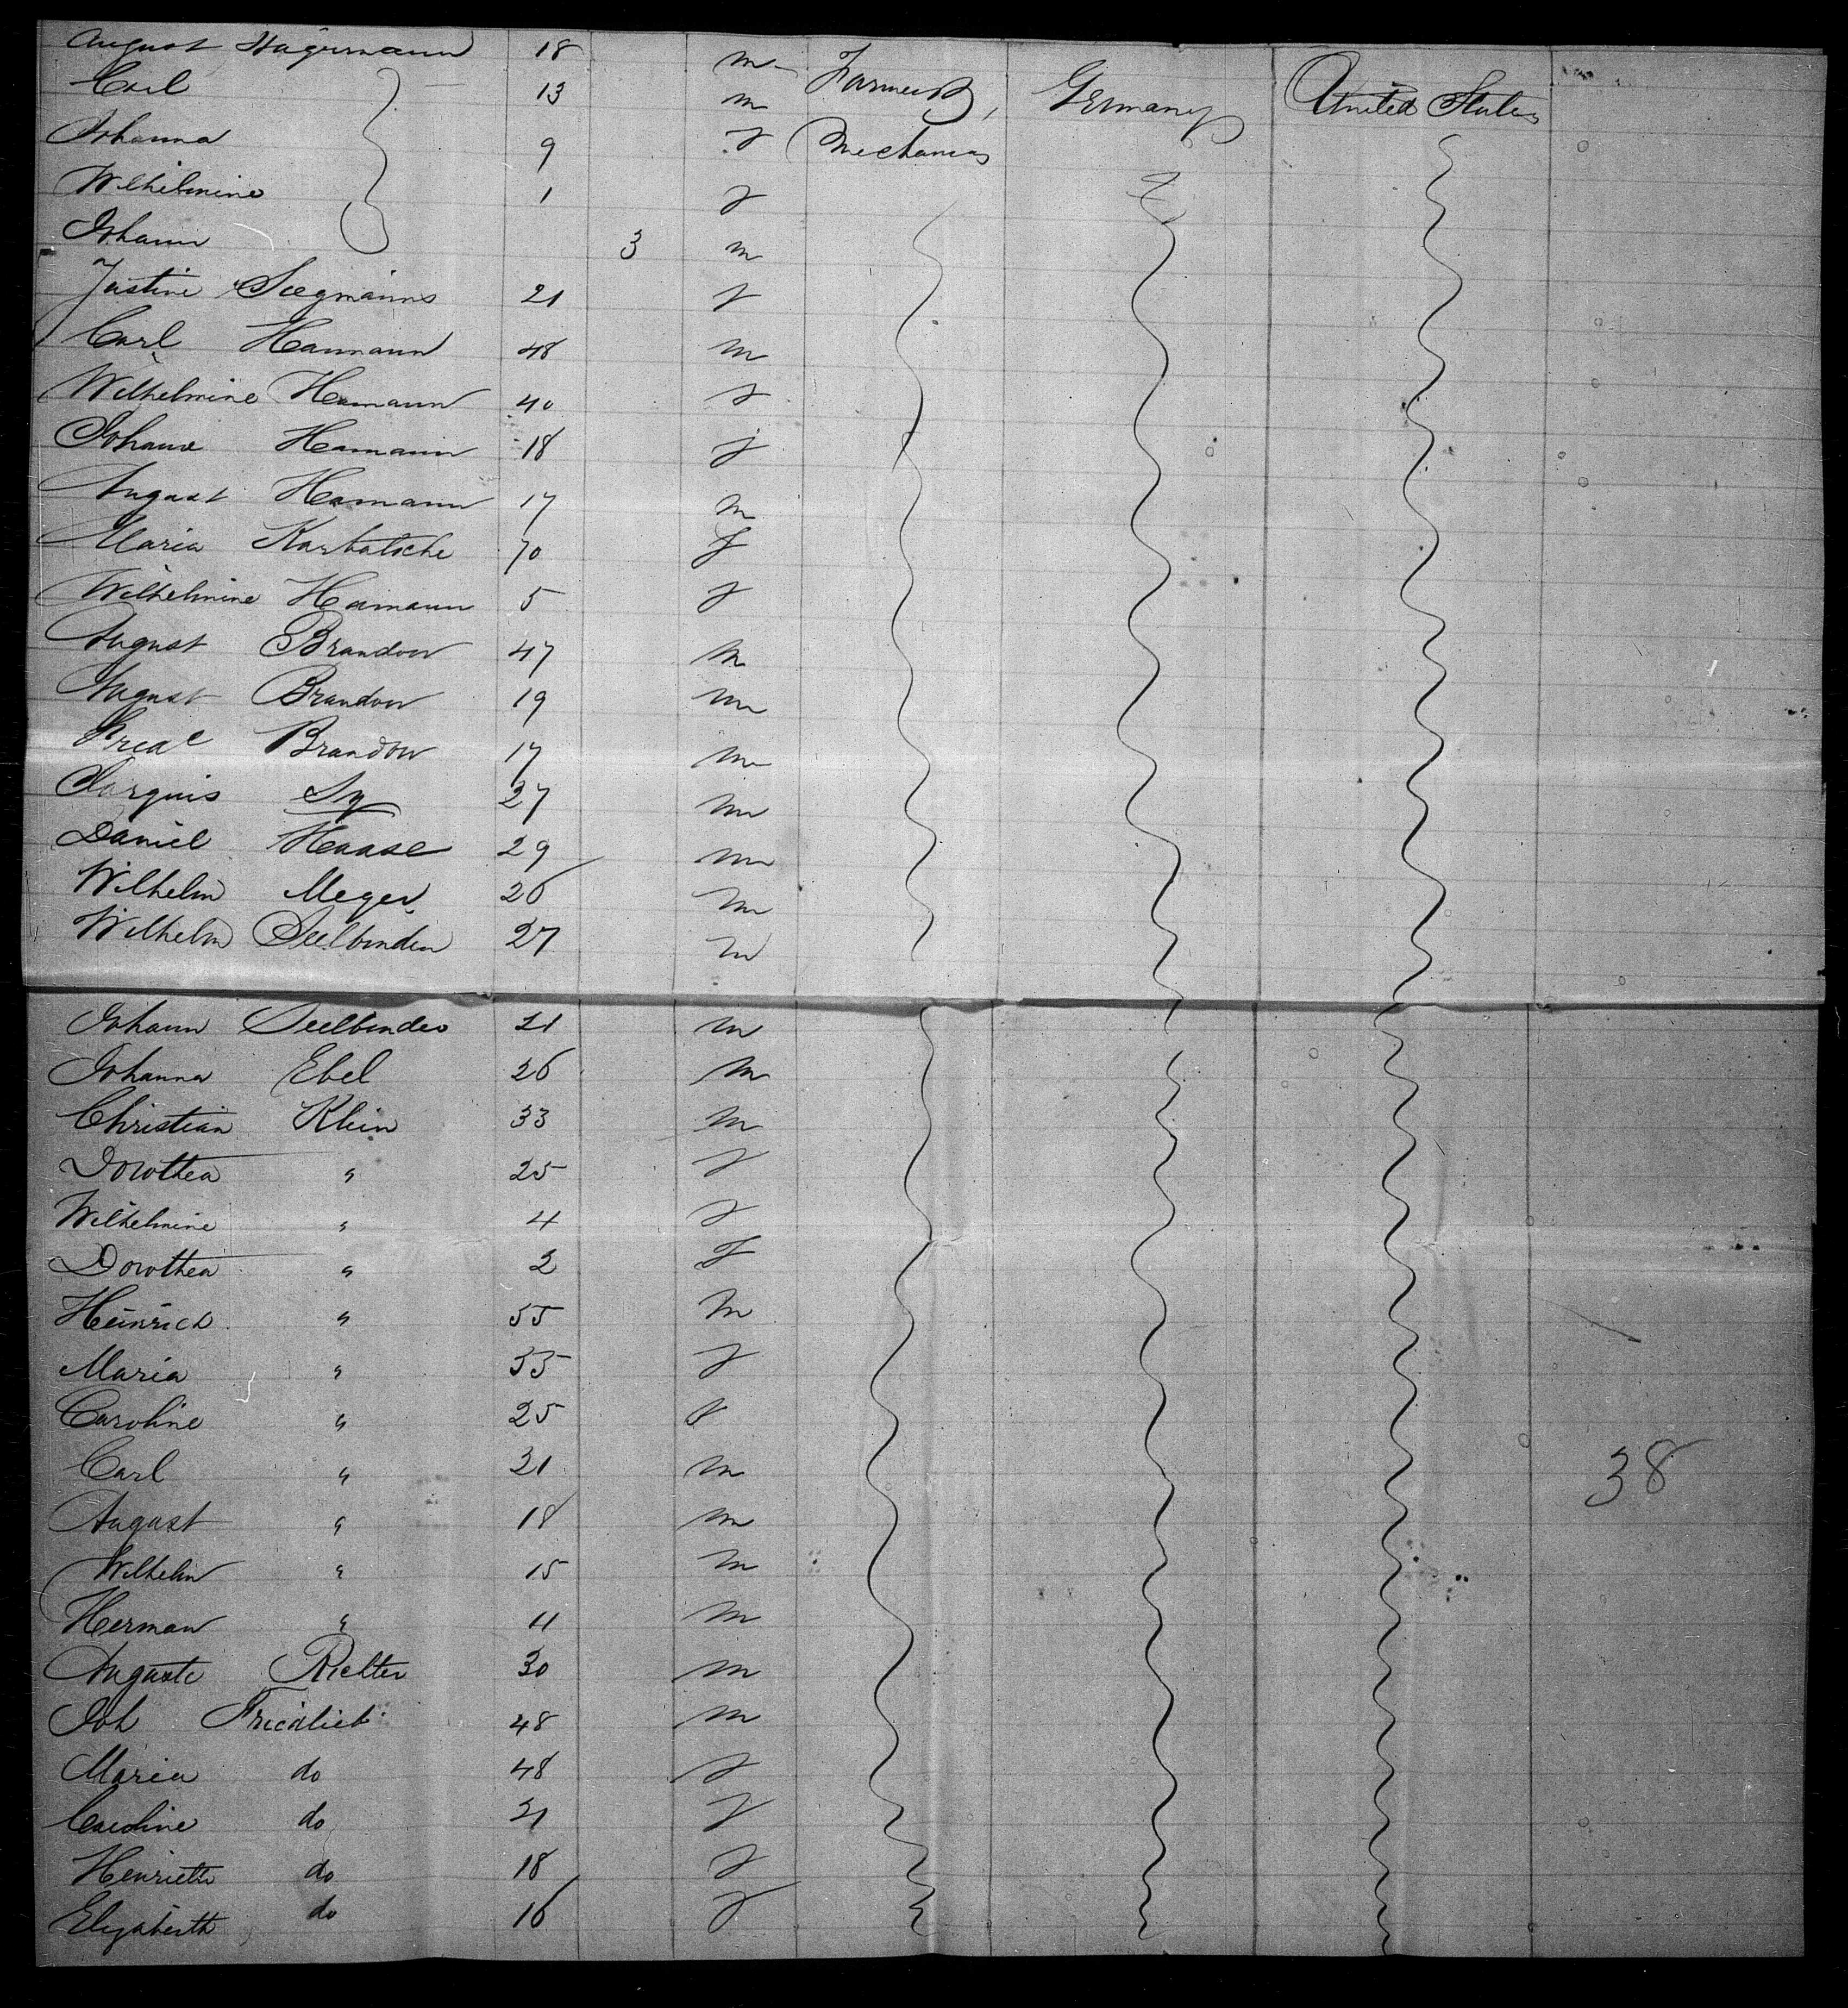 August Hagermann 18 m Farmers, Germany United States
Carl 13 m
Johanna 9 f Mechanics
Wilhelmine 1 f
Johann 3 m
Justine Siegmann 21 f
Carl Hamann 48 m
Wilhelmine Hamann 40 f
Johann Hamann 18 f
August Hamann 17 m
Maria Karbatsche 70 f
Wilhelmine Hamann 5 f
August Brandow 47 m
August Brandow 19 m
Fried Brandow 17 m
27 m
Daniel Haase 29 m
Wilhelm Meyer 26 m
Wilhelm Seelbinder 27 m
Johann Seelbinder 21 m
Johanna Ebel 26 m
Christian Klein 33 m
Dorothea " 25 f
Wilhelmine " 4 f
Dorothea " 2 f
Heinrich " 55 m
Maria " 55 f
Caroline " 25 f
Carl " 21 m
August " 18 m
38
Wilhelm " 15 m
Herman " 11 m
Auguste Richter 30 m
Joh Friedlieb 48 m
Maria do 48 f
Caroline do 21 f
Henriette do 18 f
Elizabeth do 16 f